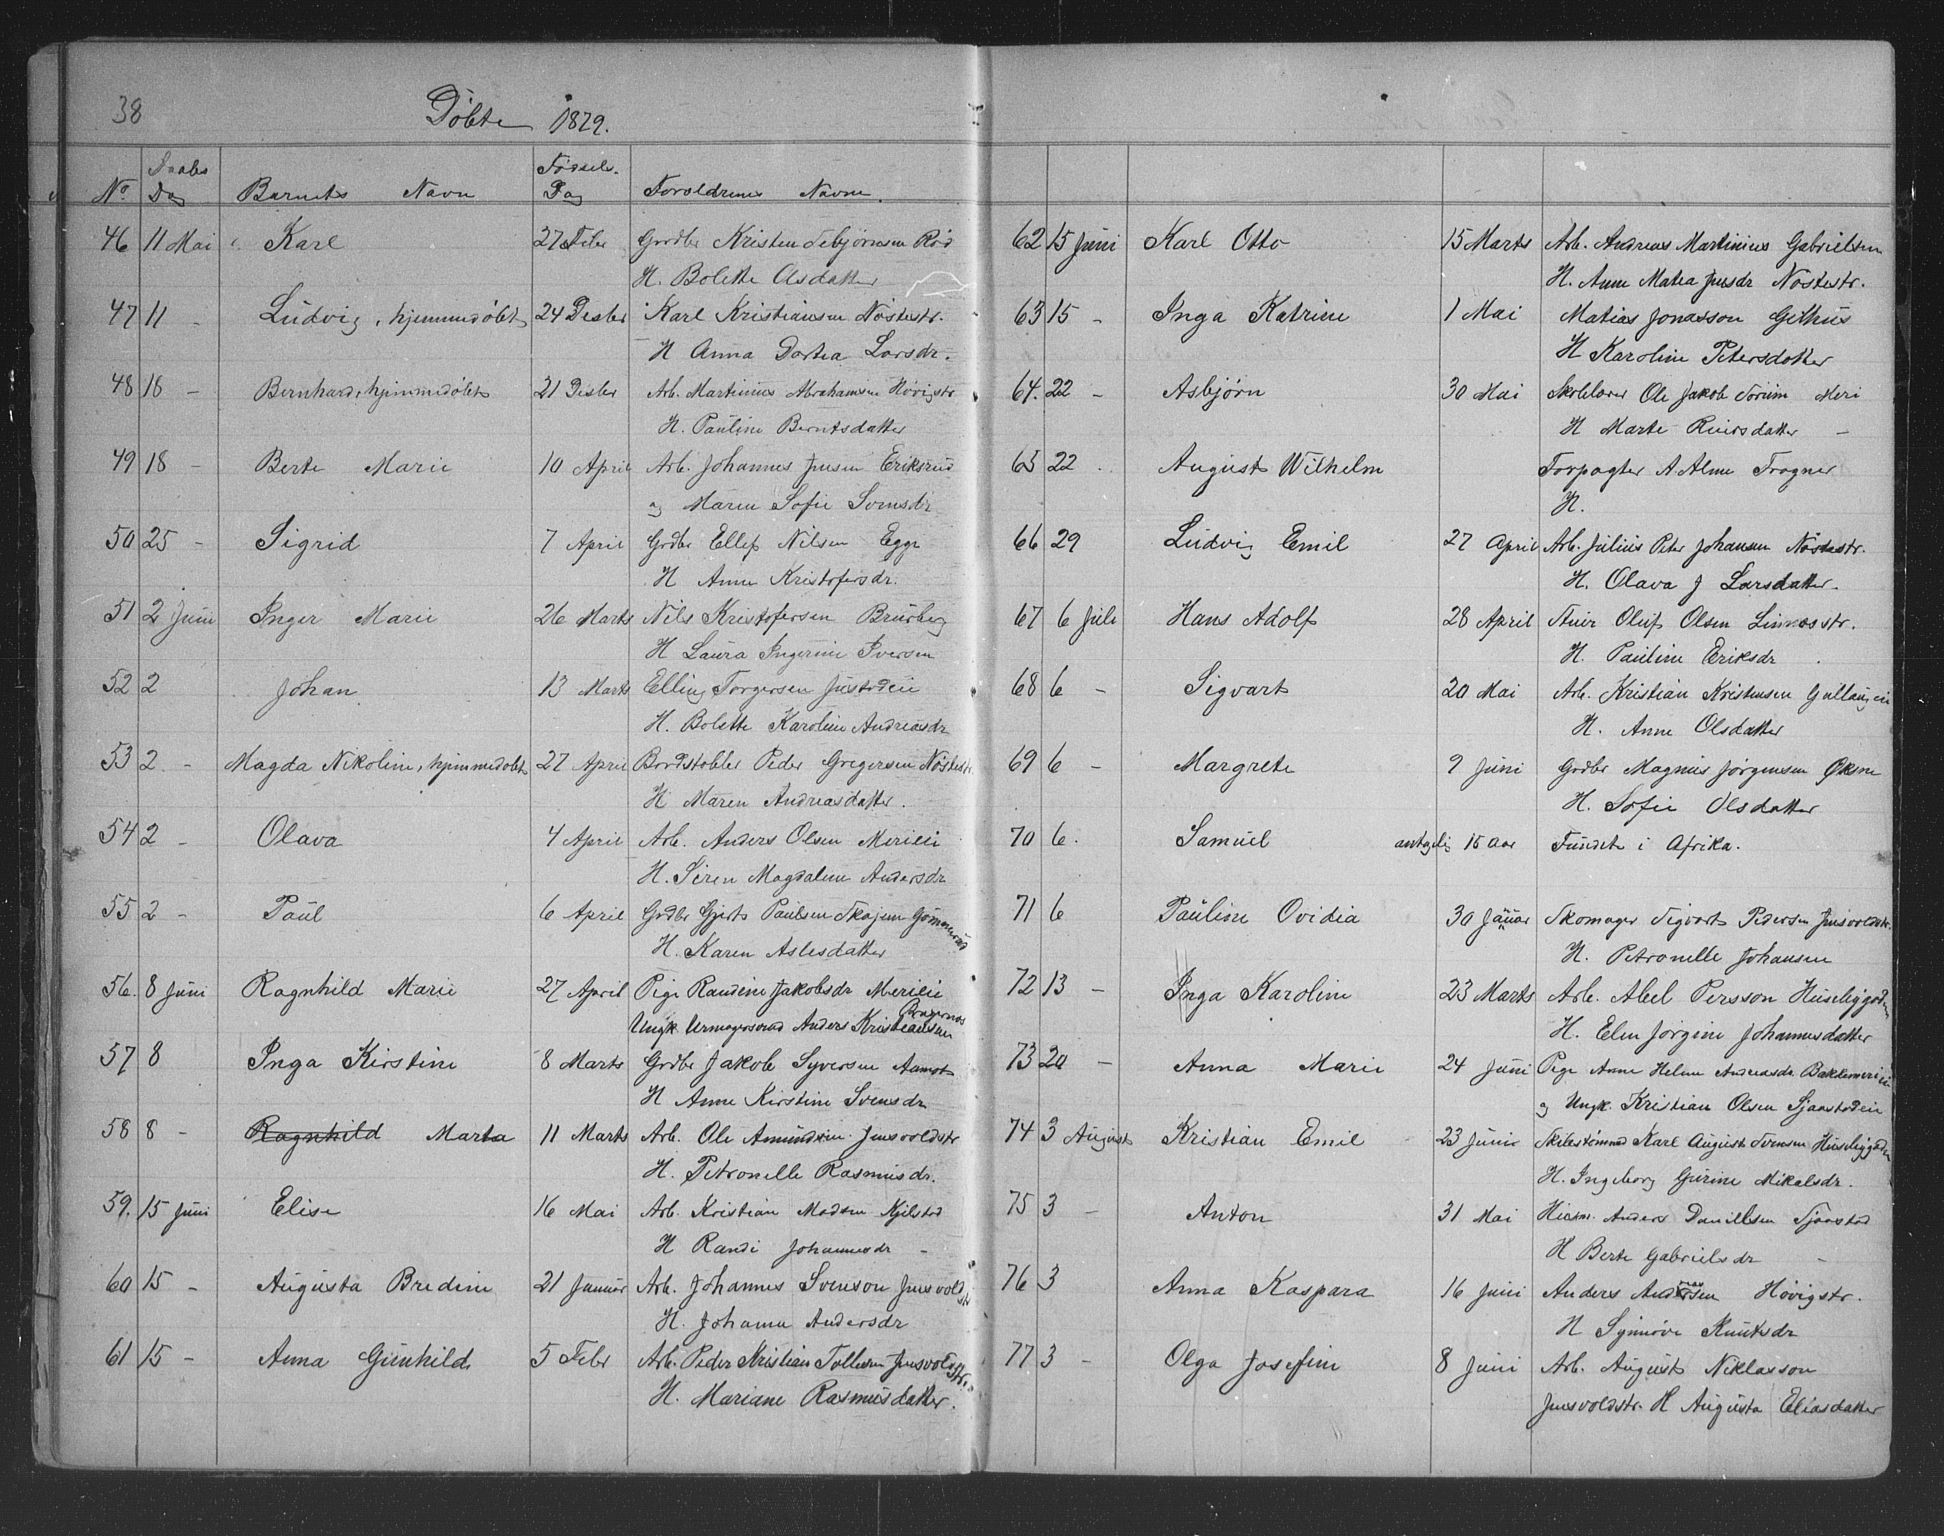 38
Døbte 1879.
No Daabs Dag Barnets Navn Fødsels Dag Forældrenes Navne.
46 11 Mai Karl 27 Febr Grdbr Kristen Tebjørnsen Rød
H. Bolette Olsdatter
47 11 - Ludvig, hjemmedøbt 24 Desbr Karl Kristiansen Nøstestr.
H Anna Dortea Larsdr.
48 18 - Bernhard, hjemmedøbt 21 Desbr Arb. Martinius Abrahamsen Høvigstr
H. Pauline Berntsdatter
49 18 - Berte Marie 10 April Arb. Johannes Jensen Eriksrud
og Maren Sofie Svensdr
50 25 - Sigrid 7 April Grdbr Ellef Nilsen Egge
H Anne Kristofersdr.
51 2 Juni Inger Marie 26 Marts Nils Kristofersen Brurberg
H Laura Ingerine Iversen
52 2 Johan 13 Marts Elling Torgersen
H. Bolette Karoline Andreasdr
53 2 - Magda Nikoline, hjemmedøbt 27 April Bordstabler Peder Gregersen Nøstestr.
H Maren Andreasdatter.
54 2 - Olava 4 April Arb. Anders Olsen Meriei
H. Siren Magdalene Andersdr
55 2 - Paul 6 April Grdbr Gjert Paulsen Gommerud
H. Karen Aslesdatter
56. 8 Juni Ragnhild Marie 27 April Pige Randine Jakobsdr Meriei
Ungk. Urmagersvend Anders Kristiansen Bragernæs
57 8 Inga Kirstine 8 Marts Grdbr Jakob Syversen Aamot
H Anne Kirstine Svensdr
58 8 - Ragnhild Marta 11 Marts Arb. Ole Amundsen Jensvoldstr
H. Petronelle Rasmusdr.
59. 15 Juni Elise 16 Mai Arb. Kristian Madsen Kjilstad
H Randi Johannesdr -
60 15 - Augusta Bredine 21 Januar Arb. Johannes Svenson Jensvoldstr
H. Johanne Andersdr
61 15 - Anna Gunhild 5 Febr Arb. Peder Kristian Tollesen Jensvoldstr.
H. Mariane Rasmusdatter.
62 15 Juni Karl Otto 15 Marts Arb. Andreas Martinius Gabrielsen
H. Anne Matea Jensdr Nøstestr.
63 15 - Inga Katrine 1 Mai Matias Jonasson Gilhus
H Karoline Petersdatter
64. 22 - Asbjørn 30 Mai Skolelærer Ole Jakob Sørum Meri
H Marte Reiersdatter -
65 22 . August Wilhelm Forpagter A. Alme Frogner
H.
66 29 Ludvig Emil 27 April Arb. Julius Peter Johansen Nøstestr.
H. Olava J Larsdatter.
67 6 Juli Hans Adolf 28 April Oluf Olsen Linnesstr.
H. Pauline Eriksdr .
68 6 - Sigvart 20 Mai Arb. Kristian Kristensen Gullaugeie
H. Anne Olsdatter
69 6 - Margrete 9 Juni Grdbr Magnus Jørgensen Øksne
H. Sofie Olsdatter
70 6. Samuel antagelig 15 Aar Fundet i Afrika.
71 6 Pauline Ovidia 30 Januar Skomager Sigvart Pedersen Jensvoldstr.
H. Petronelle Johansen
72 13 - Inga Karoline 23 Marts Arb. Abel Persson Husebygaden
H. Elen Jørgine Johannesdatter
73 20 - Anna Marie 24 Juni Pige Anne Helene Andreasdr. Bakkemerieie
og Ungk. Kristian Olsen Sjaastadeie
74 3 August Kristian Emil 23 Juni Karl August Svensen Husebygaden
H. Ingeborg Gurine Mikalsdr.
75 3 - Anton 31 Mai Anders Daniellsen Sjaastad
H Berte Gabrielsdr -
76 3 Anna Kaspara 16 Juni Anders Andreasen Høvigstr.
H Synnøve Knutsdr
77 3 - Olga Josefine 8 Juni Arb. August Niklasson
Jensvoldstr. H Augusta Eliasdatter